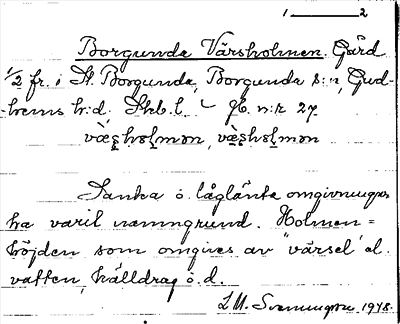 1 ——— 2
Borgunda Värsholmen. Gård
1/2 fr. i St. Borgunda, Borgunda s:n, Gud-
hems h:d. Skb. l. – jb. n:r 27.
Sanka o. låglänta omgivningar
ha varit namngrund. Holmen =
höjden som omgives av "värsel" el.
vatten, källdrag o.d.
Svenungson 1948.